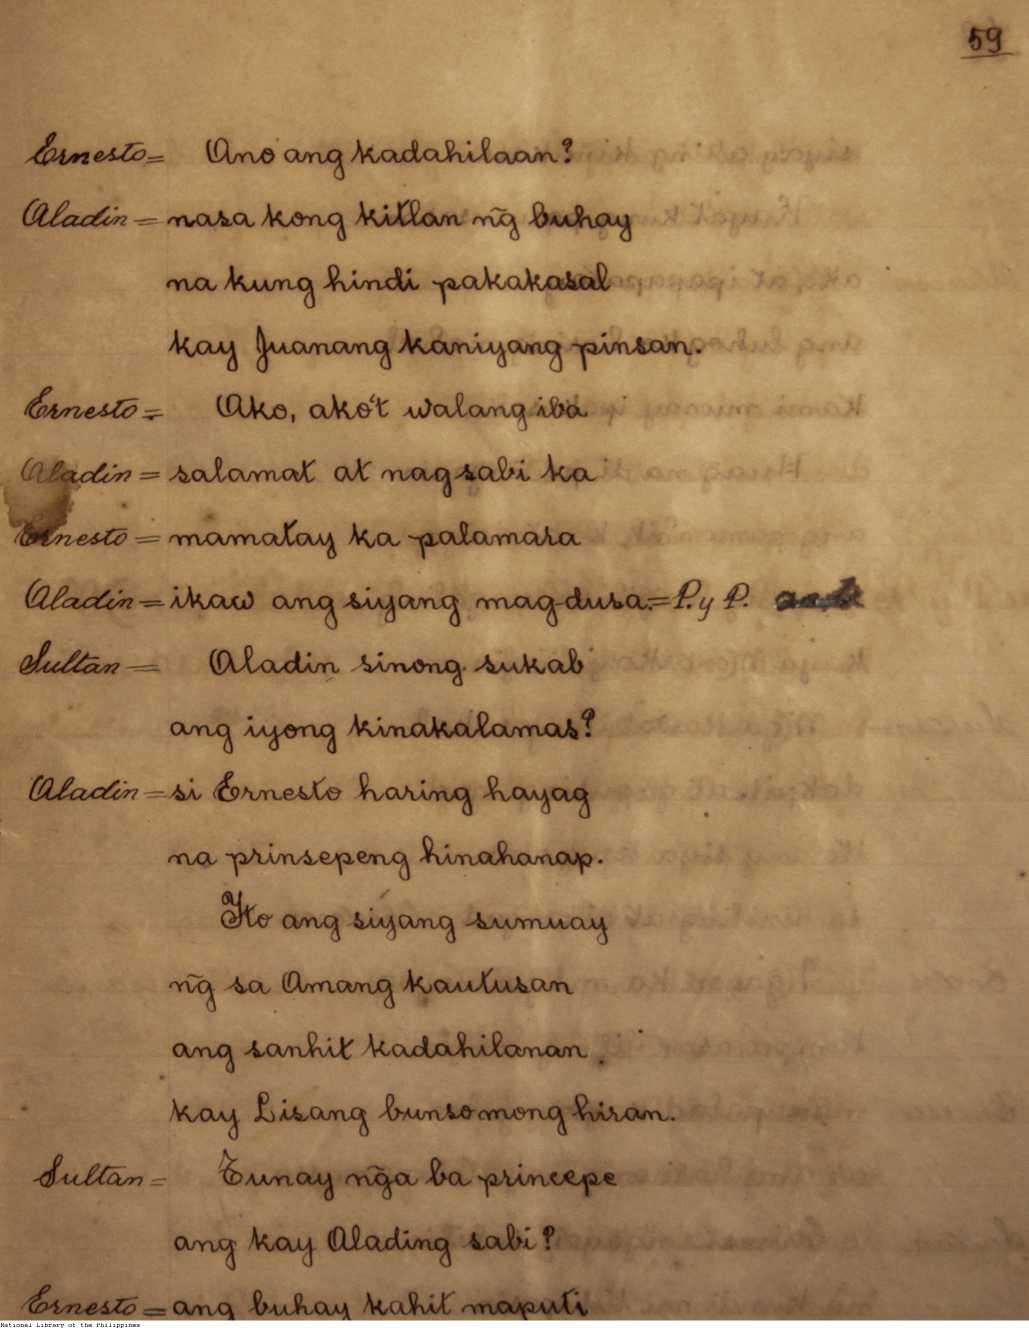 59
Ernesto= Ano ang kadahilaan?
Aladin= nasa kong kitlan ng̃ buhay
na kung hindi pakakasal
kay Juanang kaniyang pinsan.
Ernesto= Ako, ako't walang iba
Aladin= salamat at nagsabi ka
Ernesto= mamatay ka palamara
Aladin= ikaw ang siyang mag-dusa.= P. y P.
Sultan= Aladin sinong sukab
ang iyong kinakalamas?
Aladin= si Ernesto haring hayag
na prinsepeng hinahanap.
Ito ang siyang sumuay
ng̃ sa Amang kautusan
ang sanhit kadahilanan
kay Lisang bunso mong hiran.
Sultan= Tunay ng̃a ba princepe
ang kay Alading sabi?
Ernesto= ang buhay kahit maputi
National Library of the Philippines